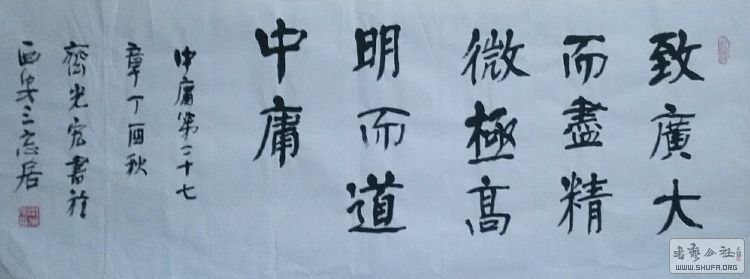 致廣大
而盡精
微極高
明而道
中庸
中庸第二十七
章丁酉秋
齊光宏書於
西安三忘居
WWW.SHUFR.ORG